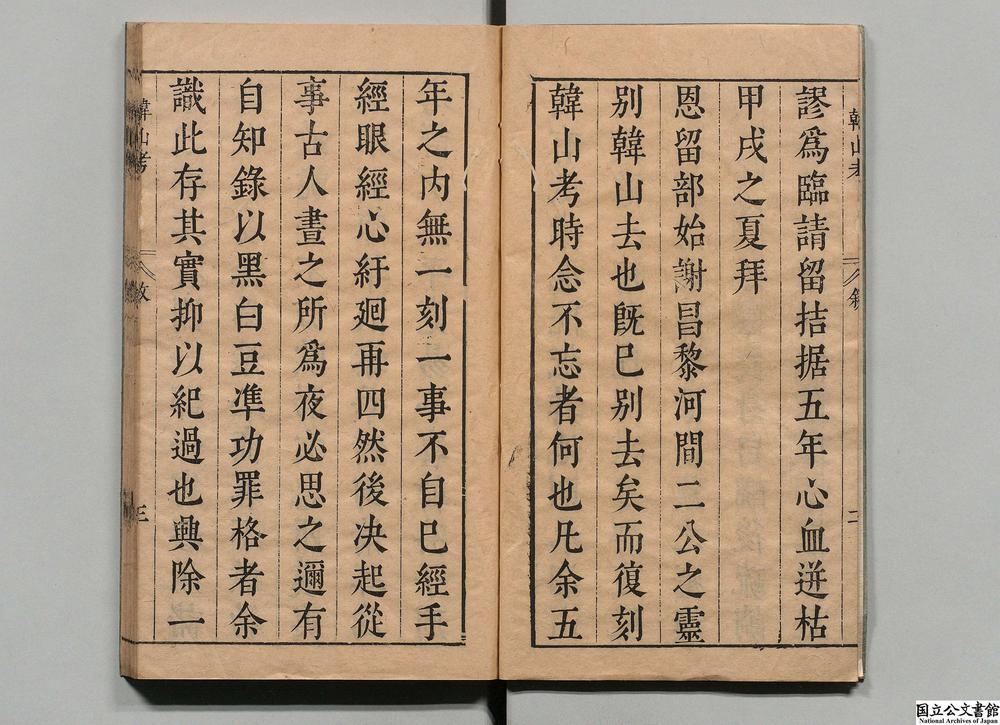 謬爲臨請留拮据五年心血迸枯
甲戌之夏拜
恩留部始謝昌黎河間二公之靈
別韓山去也旣已別去矣而復刻
韓山考時念不忘者何也凡余五
韓山考
敘
二
年之内無一刻一事不自已經手
經眼經心紆廻再四然後决起從
事古人晝之所爲夜必思之邇有
自知錄以黑白豆凖功罪格者余
識此存其實抑以紀過也興除一
韓山考
三
国立公文書館
National Archives of Japan